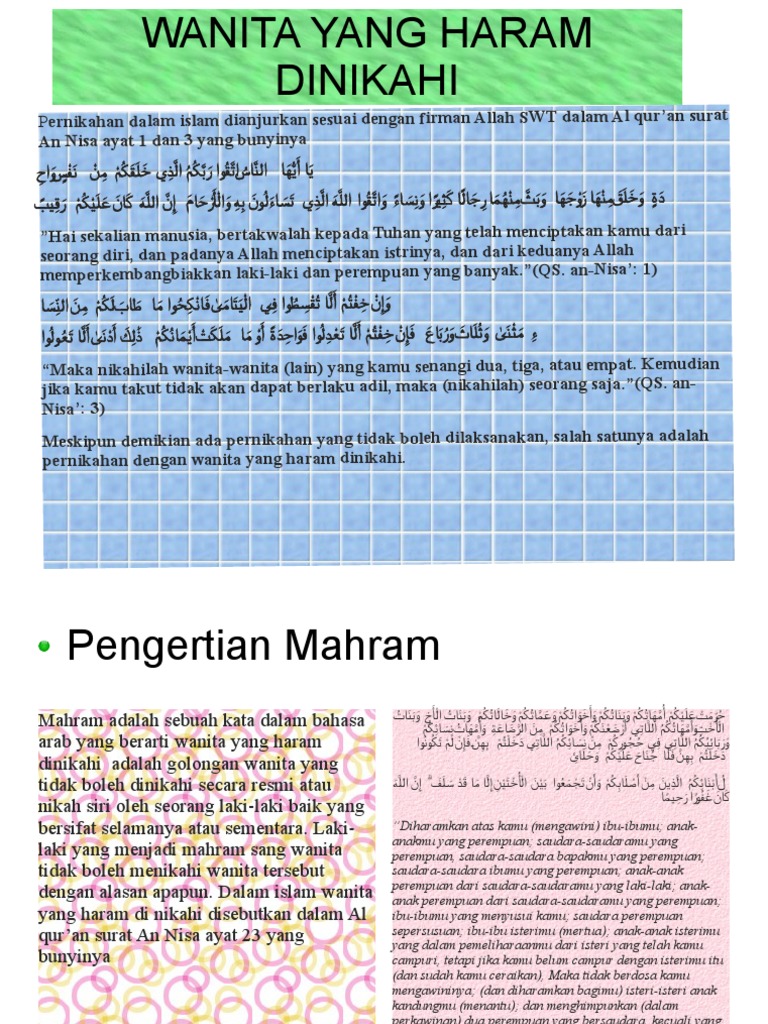 WANITA YANG HARAM
DINIKAHI
Pernikahan dalam islam dianjurkan sesuai dengan firman Allah SWT dalam Al qur'an surat
An Nisa ayat 1 dan 3 yang bunyinya
يَا أَيُّهَا النَّاسُ اتَّقُوا رَبَّكُمُ الَّذِي خَلَقَكُمْ مِنْ نَفْسٍ وَاحِ
دَةٍ وَخَلَقَ مِنْهَا زَوْجَهَا وَبَثَّ مِنْهُمَا رِجَالًا كَثِيرًا وَنِسَاءً وَاتَّقُوا اللَّهَ الَّذِي تَسَاءَلُونَ بِهِ وَالْأَرْحَامَ إِنَّ اللَّهَ كَانَ عَلَيْكُمْ رَقِيبً
"Hai sekalian manusia, bertakwalah kepada Tuhan yang telah menciptakan kamu dari
seorang diri, dan padanya Allah menciptakan istrinya, dan dari keduanya Allah
memperkembangbiakkan laki-laki dan perempuan yang banyak."(QS. an-Nisa': 1)
وَإِنْ خِفْتُمْ أَلَّا تُقْسِطُوا فِي الْيَتَامَىٰ فَانْكِحُوا مَا طَابَ لَكُمْ مِنَ النِّسَا
ءِ مَثْنَىٰ وَثُلَاثَ وَرُبَاعَ فَإِنْ خِفْتُمْ أَلَّا تَعْدِلُوا فَوَاحِدَةً أَوْ مَا مَلَكَتْ أَيْمَانُكُمْ ذَٰلِكَ أَدْنَىٰ أَلَّا تَعُولُوا
"Maka nikahilah wanita-wanita (lain) yang kamu senangi dua, tiga, atau empat. Kemudian
jika kamu takut tidak akan dapat berlaku adil, maka (nikahilah) seorang saja."(QS. an-
Nisa': 3)
Meskipun demikian ada pernikahan yang tidak boleh dilaksanakan, salah satunya adalah
pernikahan dengan wanita yang haram dinikahi.
• Pengertian Mahram
Mahram adalah sebuah kata dalam bahasa
arab yang berarti wanita yang haram
dinikahi adalah golongan wanita yang
tidak boleh dinikahi secara resmi atau
nikah siri oleh seorang laki-laki baik yang
bersifat selamanya atau sementara. Laki-
laki yang menjadi mahram sang wanita
tidak boleh menikahi wanita tersebut
dengan alasan apapun. Dalam islam wanita
yang haram di nikahi disebutkan dalam Al
qur'an surat An Nisa ayat 23 yang
bunyinya
حُرِّمَتْ عَلَيْكُمْ أُمَّهَاتُكُمْ وَبَنَاتُكُمْ وَأَخَوَاتُكُمْ وَعَمَّاتُكُمْ وَخَالَاتُكُمْ وَبَنَاتُ الْأَخِ وَبَنَاتُ
الْأُخْتِ وَأُمَّهَاتُكُمُ اللَّاتِي أَرْضَعْنَكُمْ وَأَخَوَاتُكُمْ مِنَ الرَّضَاعَةِ وَأُمَّهَاتُ نِسَائِكُمْ
وَرَبَائِبُكُمُ اللَّاتِي فِي حُجُورِكُمْ مِنْ نِسَائِكُمُ اللَّاتِي دَخَلْتُمْ بِهِنَّ فَإِنْ لَمْ تَكُونُوا
دَخَلْتُمْ بِهِنَّ فَلَا جُنَاحَ عَلَيْكُمْ وَحَلَائِ
لُ أَبْنَائِكُمُ الَّذِينَ مِنْ أَصْلَابِكُمْ وَأَنْ تَجْمَعُوا بَيْنَ الْأُخْتَيْنِ إِلَّا مَا قَدْ سَلَفَ ۗ إِنَّ اللَّهَ
كَانَ غَفُورًا رَحِيمًا
"Diharamkan atas kamu (mengawini) ibu-ibumu; anak-
anakmu yang perempuan; saudara-saudaramu yang
perempuan, saudara-saudara bapakmu yang perempuan;
saudara-saudara ibumu yang perempuan; anak-anak
perempuan dari saudara-saudaramu yang laki-laki; anak-
anak perempuan dari saudara-saudaramu yang perempuan;
ibu-ibumu yang menyusui kamu; saudara perempuan
sepersusuan; ibu-ibu isterimu (mertua); anak-anak isterimu
yang dalam pemeliharaanmu dari isteri yang telah kamu
campuri, tetapi jika kamu belum campur dengan isterimu itu
(dan sudah kamu ceraikan), Maka tidak berdosa kamu
mengawininya; (dan diharamkan bagimu) isteri-isteri anak
kandungmu (menantu); dan menghimpunkan (dalam
perkawinan) dua perempuan yang bersaudara, kecuali yang